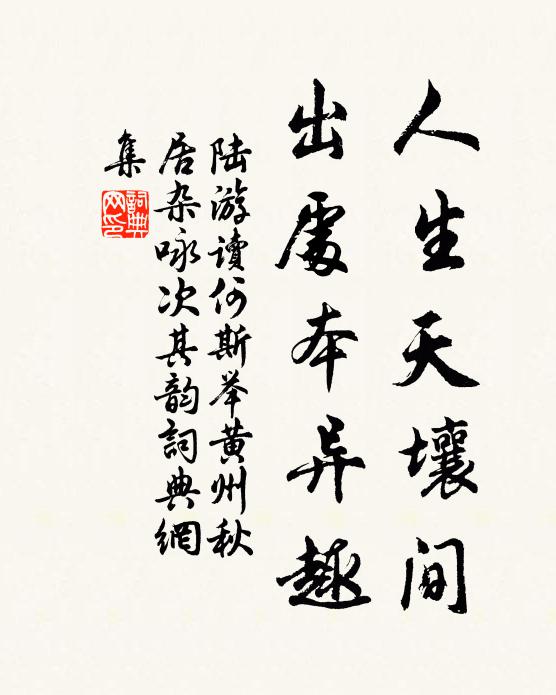 人生天壤间
出處本异趣
陆游读何斯举黄州秋
居杂咏次其韵詞典網
集
詞典
网印